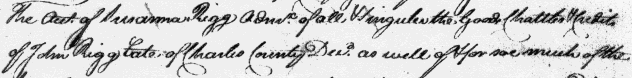 The Acct. of Susanna Rigg Admx. of all & Singular the Goods Chattles & Credits
of John Rigg Late of Charles County Decd. as well of & for soe much of the